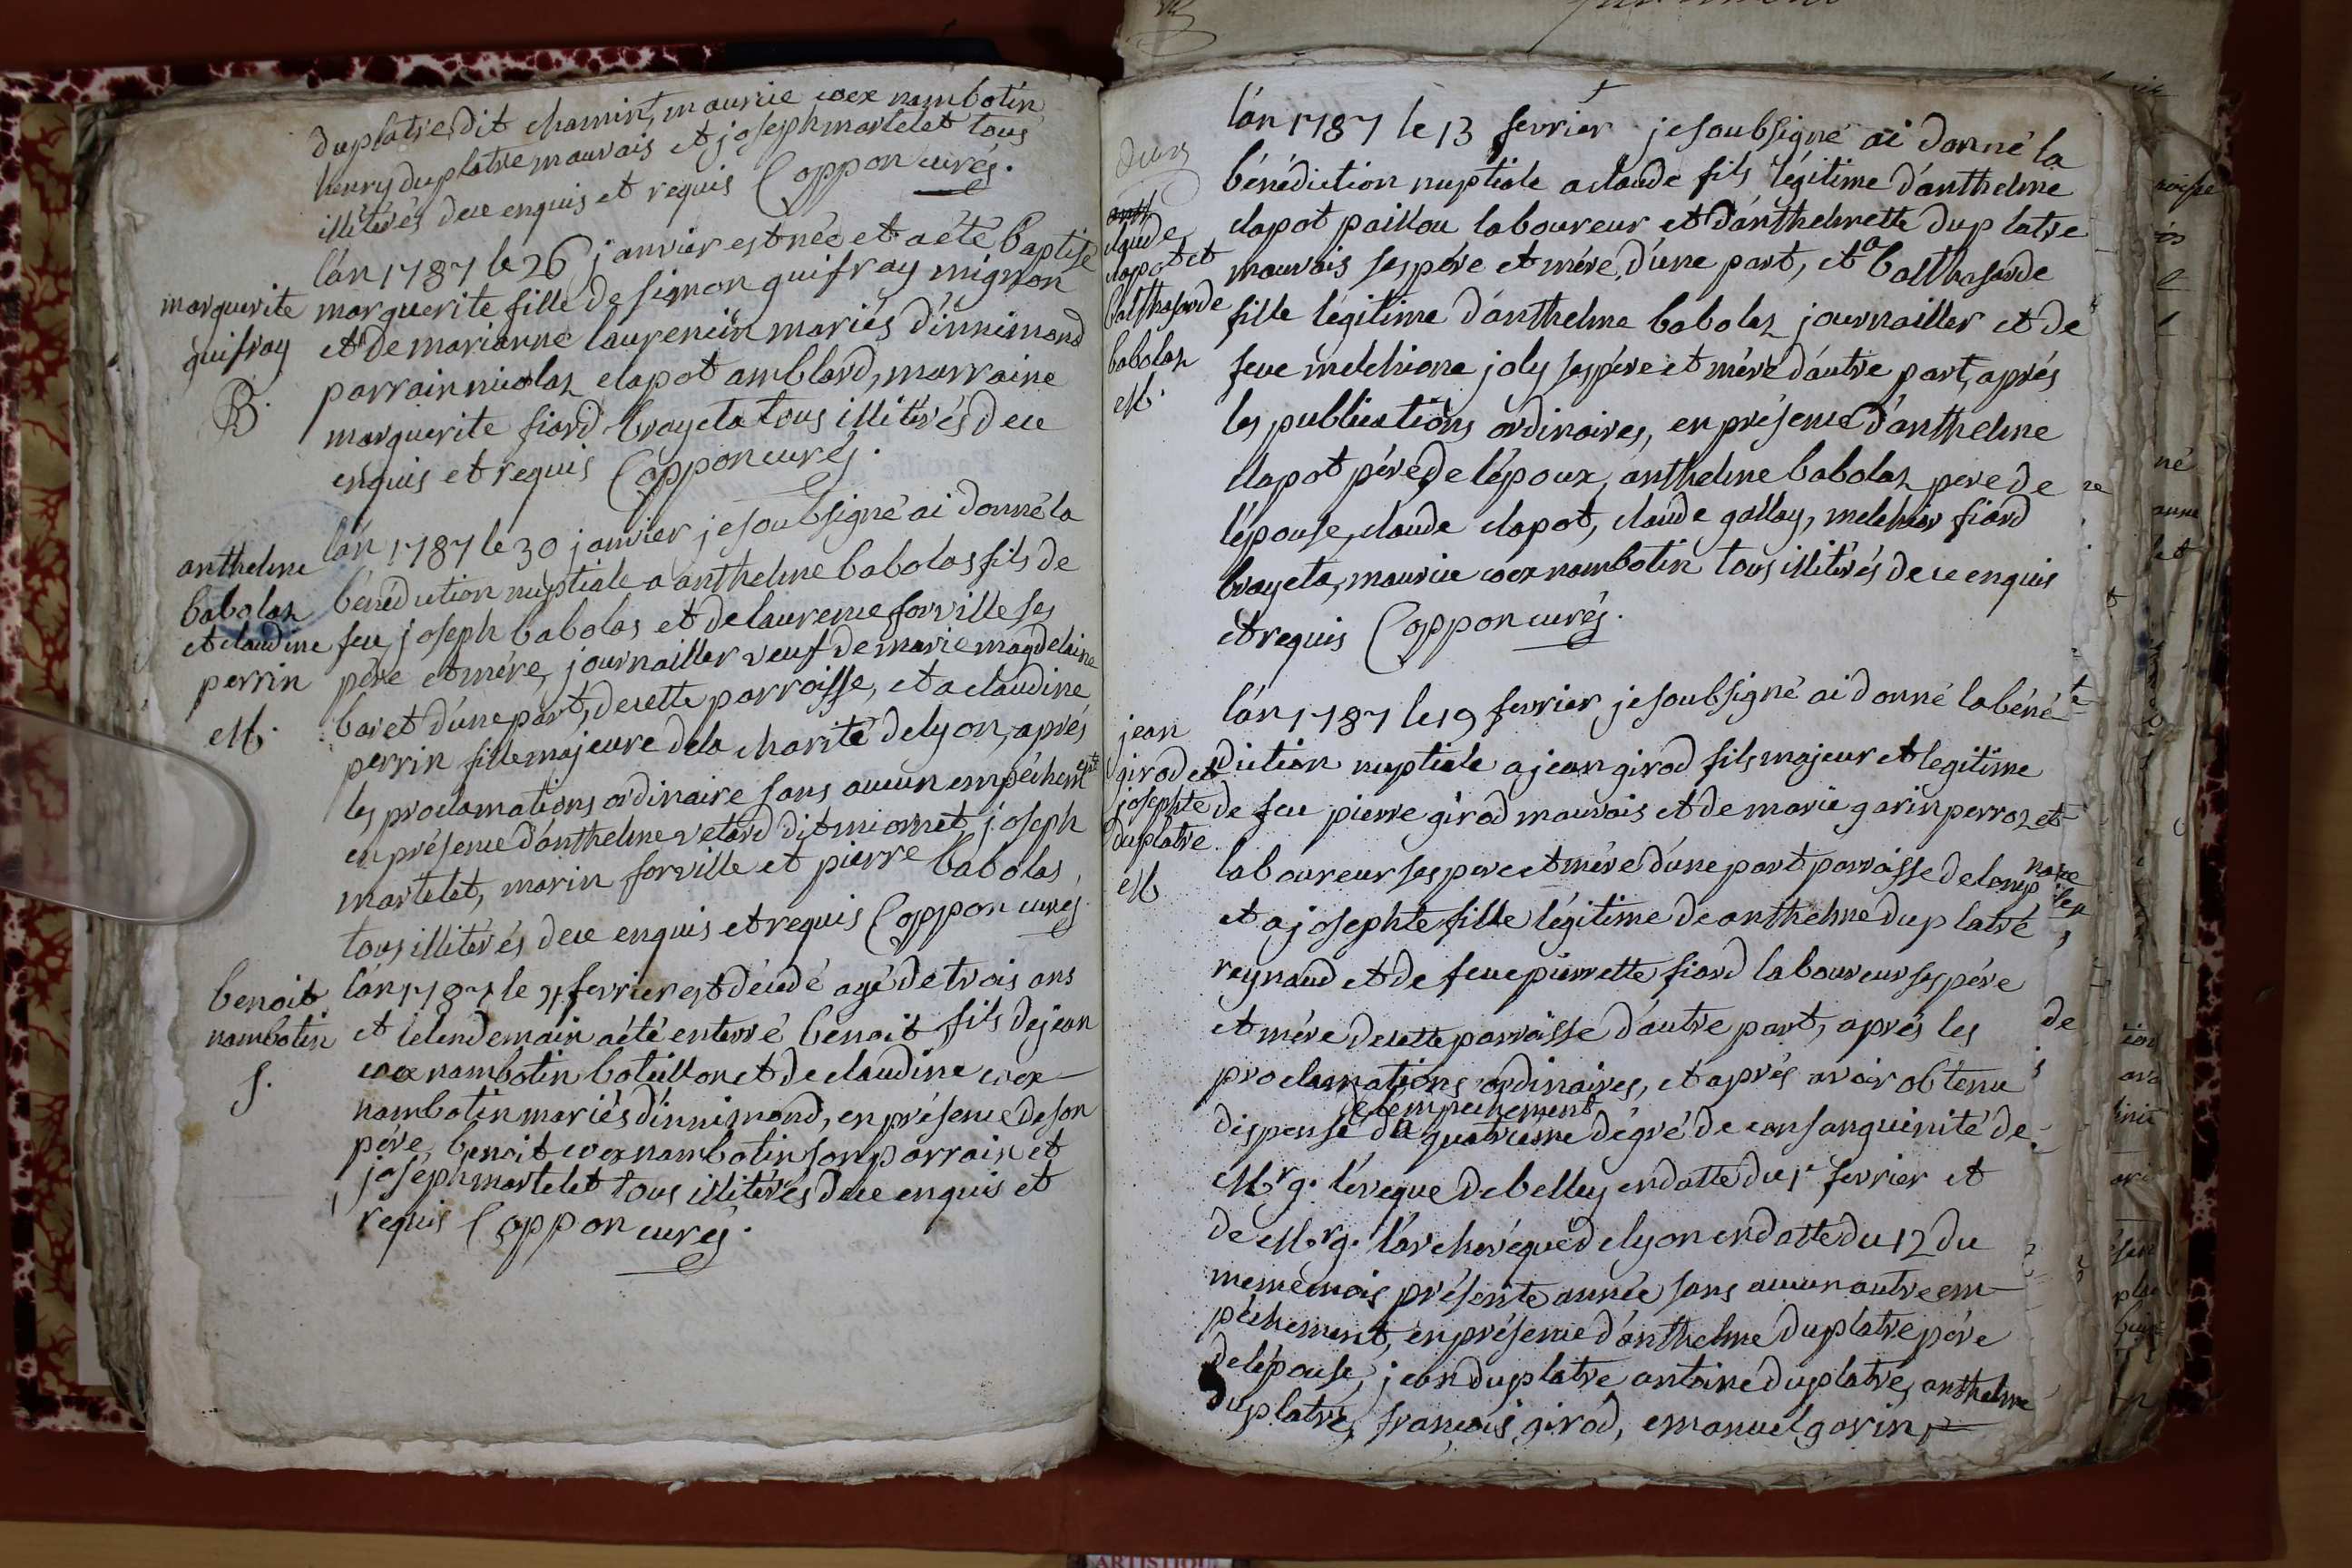 duplatre dit chamint, maurice coex nambotin
henry duplatre mauvais et joseph martelet tous
illitérés de ce enquis et requis Coppon curé.
marguerite
guifray
B.
l'an 1787 le 26 janvier est née et a été baptise
marguerite fille de simon guifray mignon
et de marianne laurencin mariés d'innimond
parrain nicolaz clapot amblard, marraine
marguerite fiard brayeta tous illitérés de ce
enquis et requis Coppon curé.
anthelme
babolaz
et claudine
perrin
M.
l'an 1787 le 30 janvier je soubsigné ai donné la
bénédiction nuptiale a anthelme babolas fils de
feu joseph babolas et de laurence forville ses
père et mére, journailler veuf de marie magdelaine
baret d'une part, de cette parroisse, et a claudine
perrin fille majeure de la charité de lyon, aprés
les proclamations ordinaire sans aucun empéchement
en présence d'anthelme vetard dit mionet joseph
martelet, marin forville et pierre babolas,
tous illitérés de ce enquis et requis Coppon curé
benoit
nambotin
S.
l'an 1787 le febrier est décédé agé de trois ans
et le lendemain a été enterré benoit fils de jean
coex nambotin botillon et de claudine coex
nambotin mariés d'innimond, en présence de son
pére, benoit coex nambotin son parrain et
joseph martelet tous illitérés de ce enquis et
requis Coppon curé.
claude
clapot et
balthasarde
babolaz
M.
l'an 1787 le 13 fevrier je soubsigné ai donné la
bénédiction nuptiale a claude fils légitime d'anthelme
clapot paillou laboureur et d'anthelmette duplatre
mauvais ses pére et mére, d'une part, et a balthasarde
fille légitime d'anthelme babolaz journailler et de
feue melchione joly ses pére et mére d'autre part, aprés
les publications ordinaires, en présence d'anthelme
clapot pére de l'époux, anthelme babolaz pere de
l'épouse, claude clapot, claude gallay, melchior fiard
brayeta, maurice coex nambotin tous illitérés de ce enquis
et requis Coppon curé.
jean
girod et
josephte
duplatre
M
l'an 1787 le 19 fevrier je soubsigné ai donné la béné-
diction nuptiale a jean girod fils majeur et legitime
de feu pierre girod mauvais et de marie garin perroz et
laboureur ses pere et mére d'une part parroisse de
et a josephte fille légitime de anthelme duplatre
reynaud et de feue pierrette fiard laboureur ses pére
et mére de cette parroisse d'autre part, aprés les
proclamations ordinaires, et aprés avoir obtenu
de l'empechement
dispense du quatrieme dégré de consanguinité de
Mrg. l'éveque de belley en datte du 1r fevrier et
de Mrg. l'archevéque de lyon en datte du 12 du
meme mois présente année sans aucun autre em-
péchement, en présence d'anthelme duplatre pére
de l'épouse, jean duplatre antoine duplatre, anthelme
duplatre, francois girod, emanuel garin